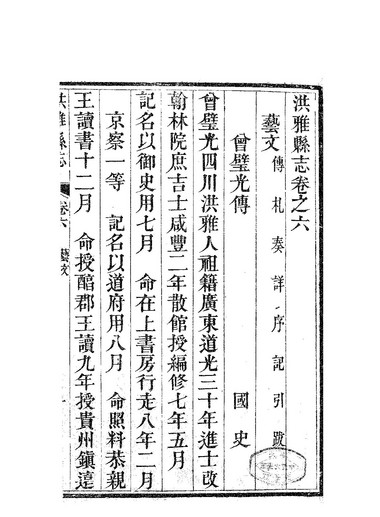 洪雅縣志卷之六
藝文 傳 札 奏 詳 序 記 引 跋
曾璧光傳 國史
曾璧光四川洪雅人祖籍廣東道光三十年進士改
翰林院庶吉士咸豐二年散館授編修七年五月
記名以御史用七月 命在上書房行走八年二月
京察一等 記名以道府用八月 命照料恭親
王讀書十二月 命授醕郡王讀九年授貴州鎮遠
洪雅縣志 卷六 藝文